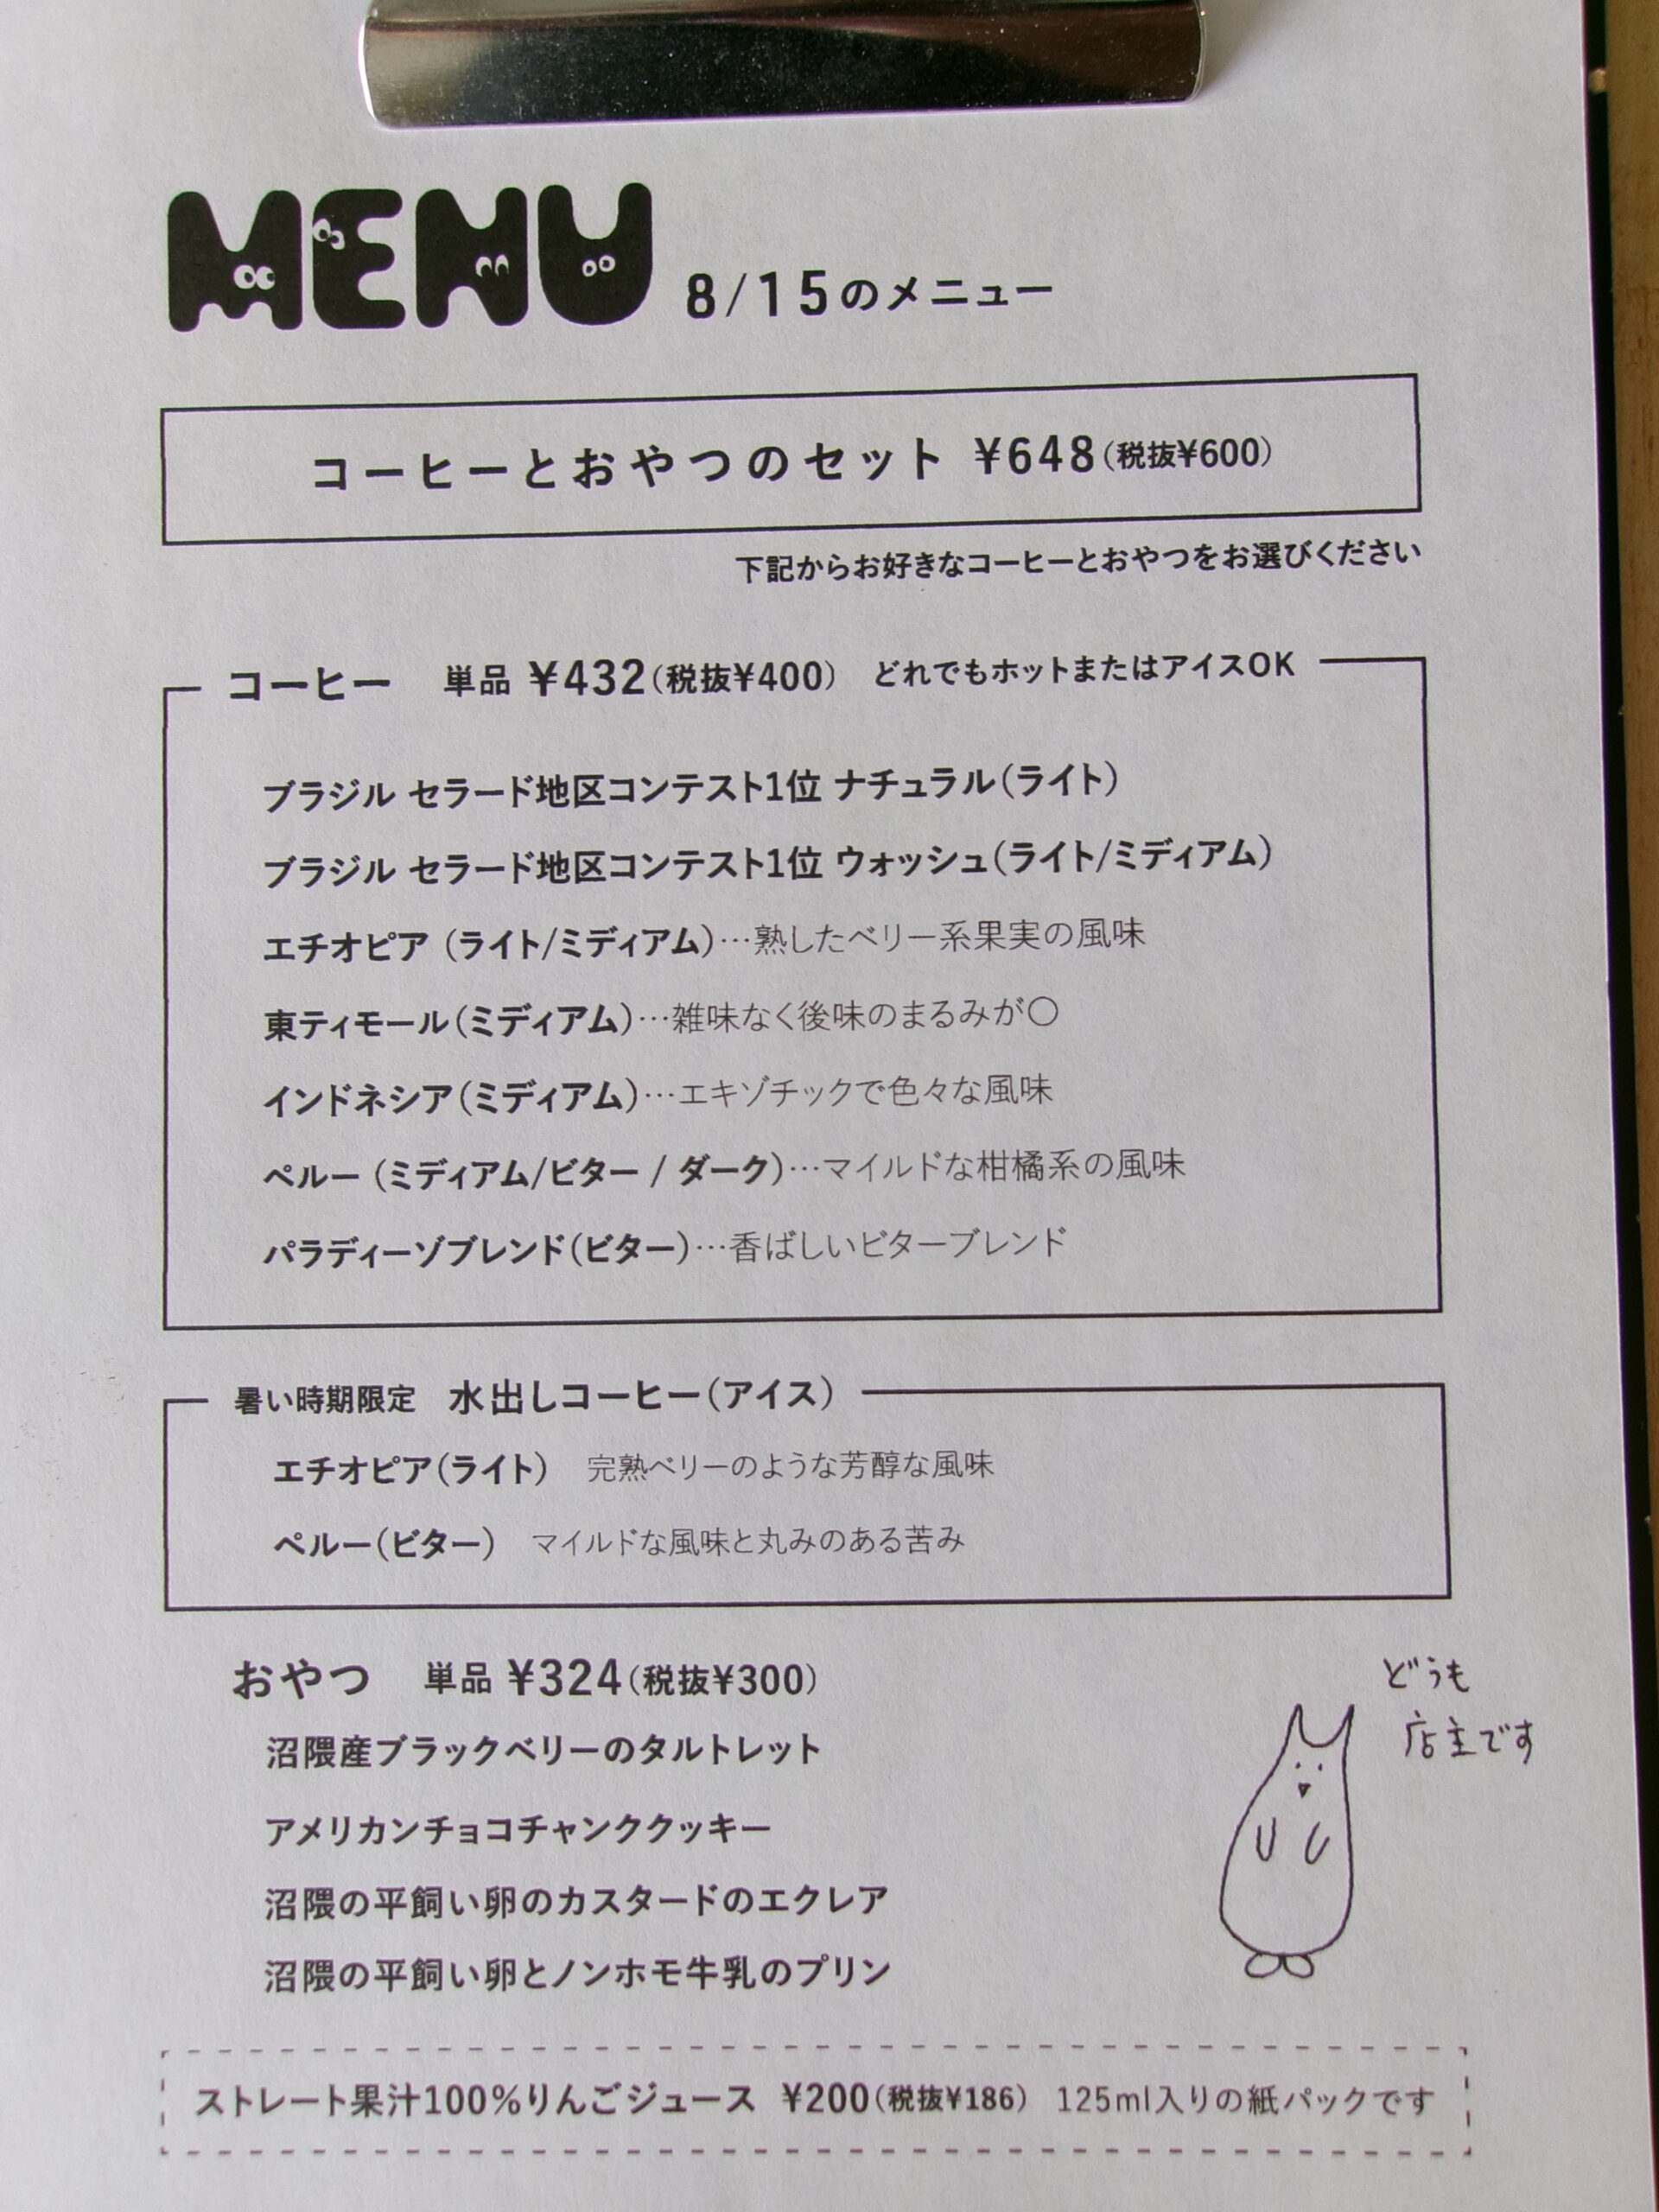 MENU 8/15のメニュー
コーヒーとおやつのセット ¥648(税抜¥600)
下記からお好きなコーヒーとおやつをお選びください
コーヒー 単品 ¥432(税抜¥400) どれでもホットまたはアイスOK
ブラジル セラード地区コンテスト1位 ナチュラル(ライト)
ブラジル セラード地区コンテスト1位 ウォッシュ(ライト/ミディアム)
エチオピア (ライト/ミディアム)…熟したベリー系果実の風味
東ティモール(ミディアム)…雑味なく後味のまるみが〇
インドネシア(ミディアム)…エキゾチックで色々な風味
ペルー (ミディアム/ビター / ダーク)…マイルドな柑橘系の風味
パラディーゾブレンド(ビター)…香ばしいビターブレンド
暑い時期限定 水出しコーヒー(アイス)
エチオピア(ライト) 完熟ベリーのような芳醇な風味
ペルー(ビター) マイルドな風味と丸みのある苦み
おやつ 単品 ¥324(税抜¥300)
沼隈産ブラックベリーのタルトレット
アメリカンチョコチャンククッキー
沼隈の平飼い卵のカスタードのエクレア
沼隈の平飼い卵とノンホモ牛乳のプリン
どうも
店主です
ストレート果汁100%りんごジュース ¥200(税抜¥186) 125ml入りの紙パックです